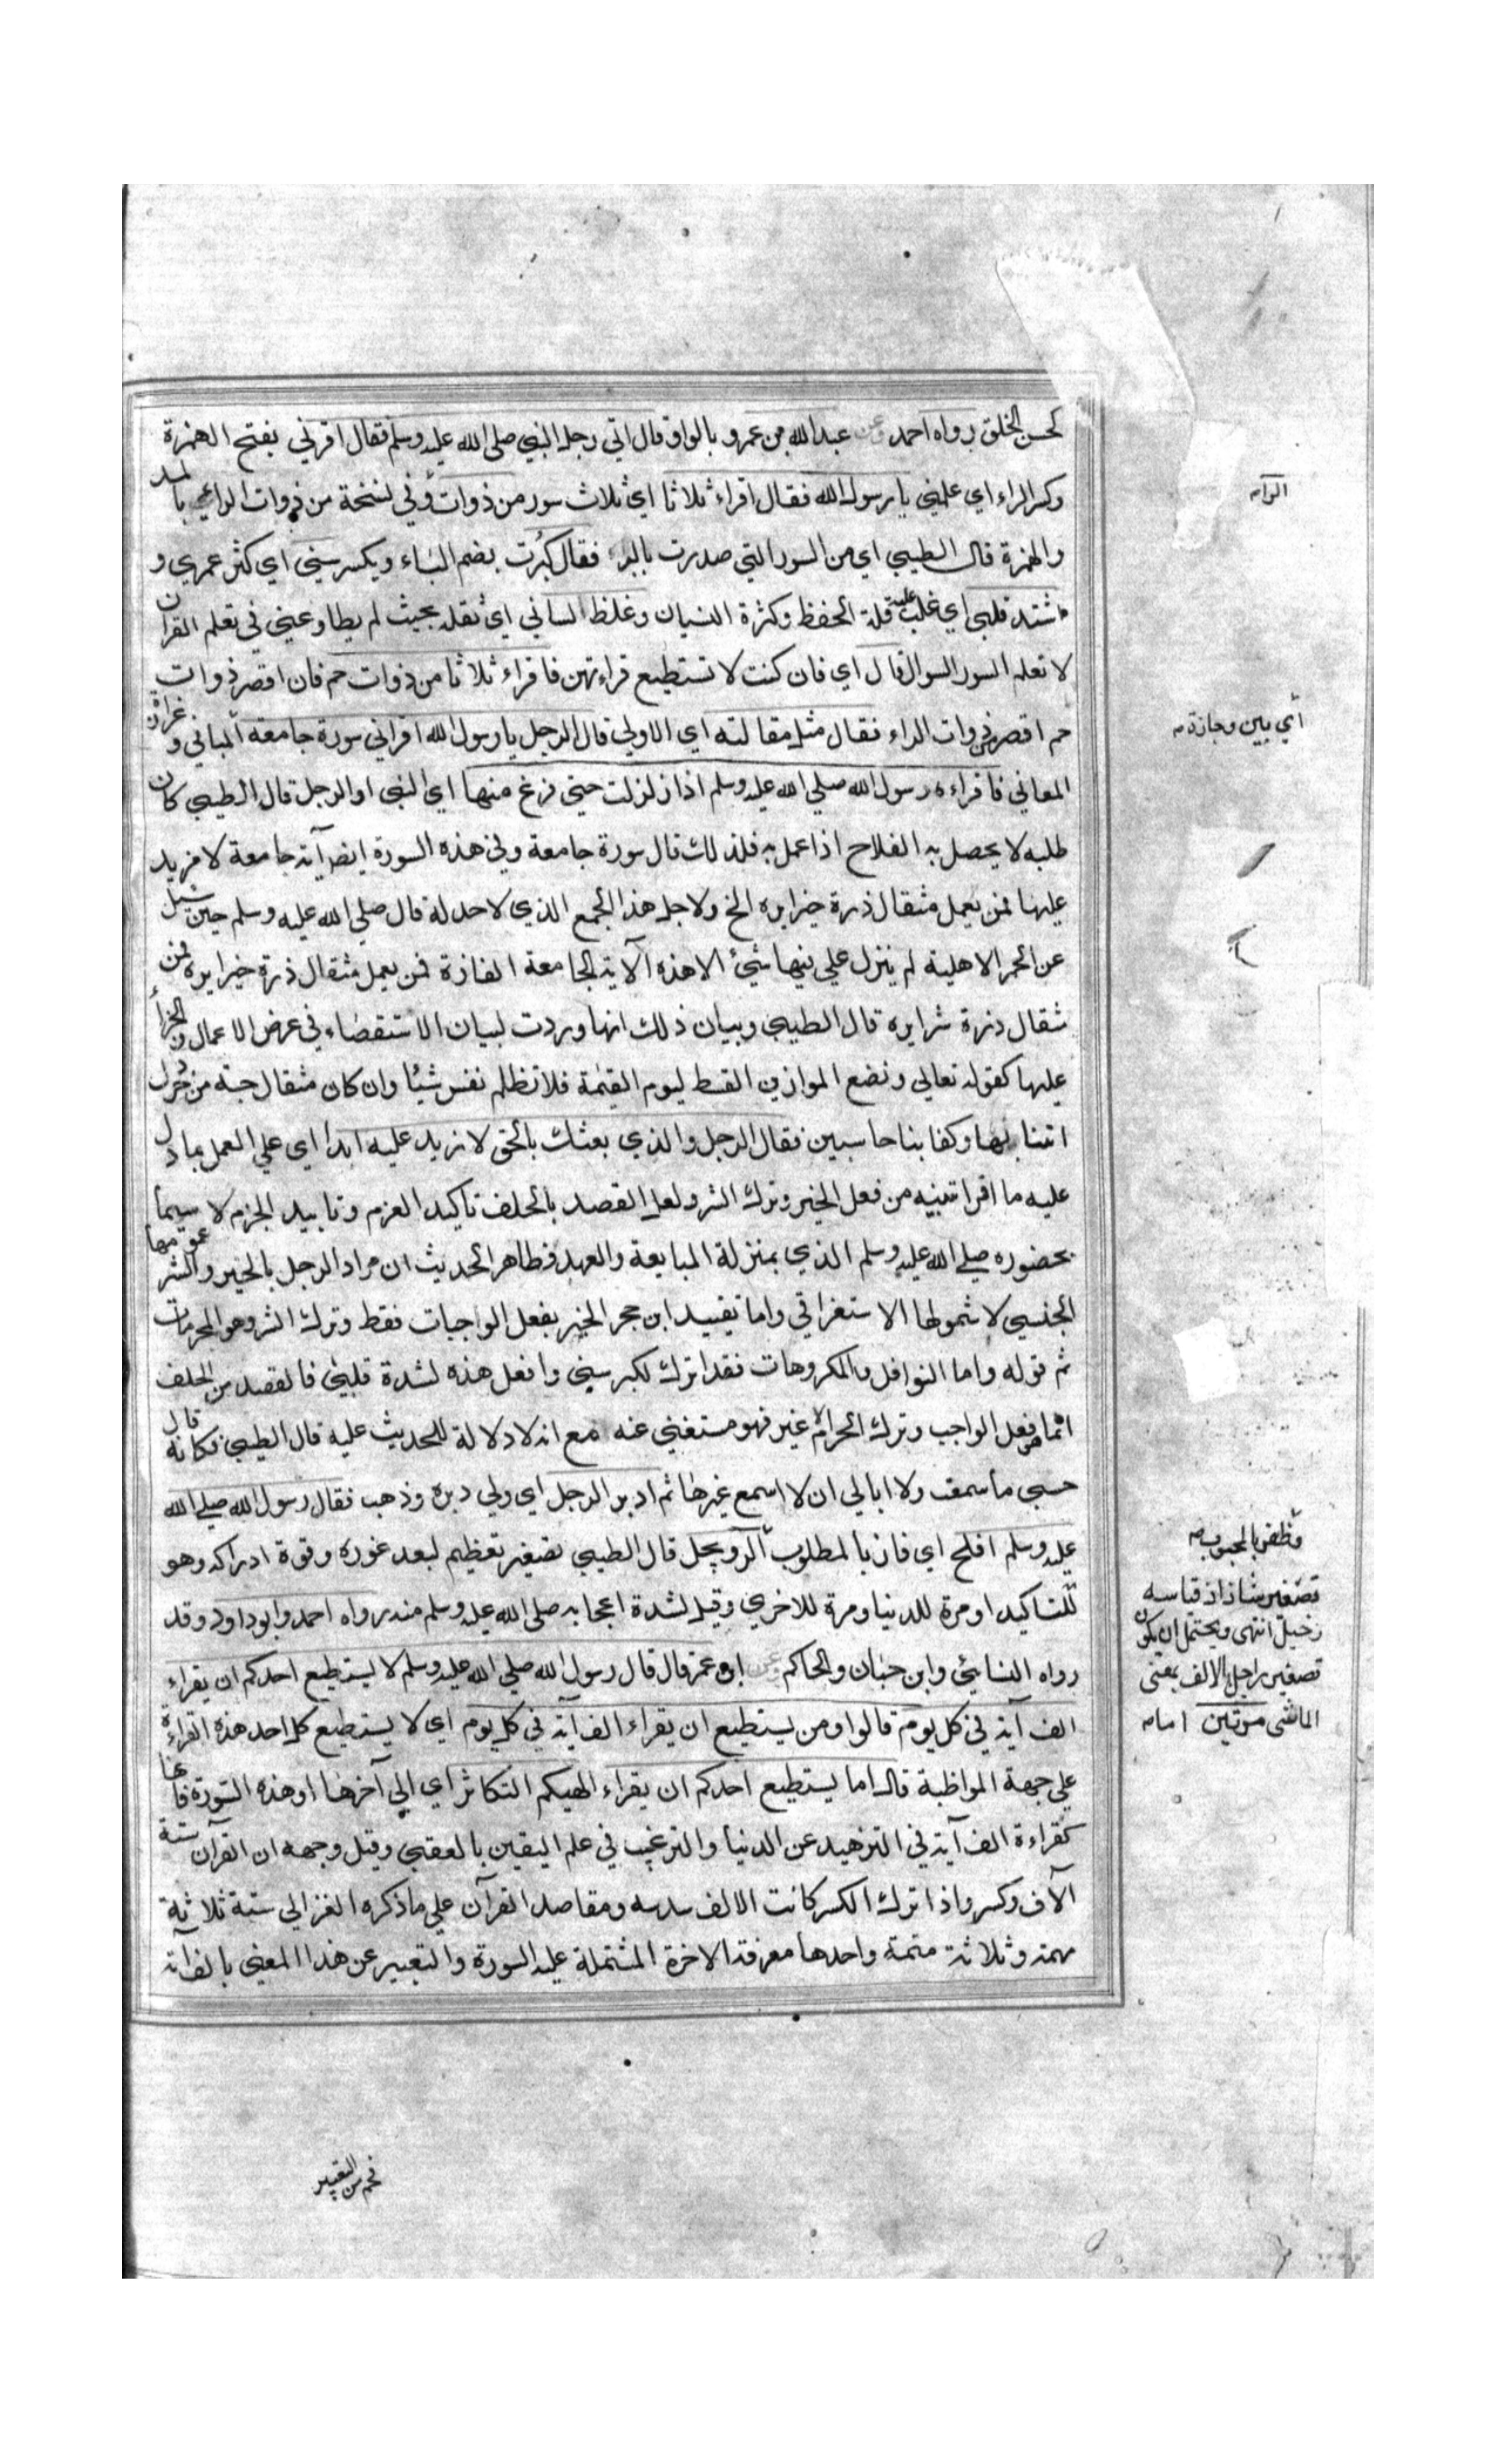 كحسن الخلق رواه احمد وعن عبد الله بن عمرو بالواو قال اتي رجل النبي صلى الله عليه وسلم فقال اقرئني بفتح الهمزة
وكسر الراء اي علمني يا رسول الله فقال اقراء ثلاثا اي ثلاث سور من ذوات وفي نسخة من ذوات الراء بالمد
والهمزة قال الطيبي اي من السور التي صدرت بالر فقال كبُرت بضم الباء ويكسر سني اي كثر عمري و
اشتد قلبي اي غلب عليه قلة الحفظ وكثرة النسيان وغلظ لساني اي ثقل بحيث لم يطاوعني في تعلم القران
لا تعلم السور السوال قال اي فان كنت لا تستطيع قراءتهن فاقراء ثلاثا من ذوات حم فان اقصر ذوات
حم اقصر من ذوات الراء فقال مثل مقالته اي الاولي قال الرجل يا رسول الله اقراني سورة جامعة المباني و
المعاني فاقراءه رسول الله صلي الله عليه وسلم اذا زلزلت حتي فرغ منها اي النبي او الرجل قال الطيبي كان
طلبه لا يحصل به الفلاح اذا عمل به فلذلك قال سورة جامعة وفي هذه السورة ايضا آية جامعة لا مزيد
عليها فمن يعمل مثقال ذرة خيرا يره الخ ولاجل هذا الجمع الذي لا حد له قال صلي الله عليه وسلم حين سئل
عن الحمر الاهلية لم ينزل علي فيها شيء الا هذه الآية الجامعة الفاذة فمن يعمل مثقال ذرة خيرا يره فمن
مثقال ذرة شرا يره قال الطيبي وبيان ذلك انها وردت لبيان الاستقصاء في عرض الاعمال والجزاء
عليها كقوله تعالي ونضع الموازين القسط ليوم القيمة فلا تظلم نفس شيئا وان كان مثقال حبة من خردل
اتينا بها وكفا بنا حاسبين فقال الرجل والذي بعثك بالحق لا نزيد عليه ابدا اي علي العمل بما دل
عليه ما اقراتنيه من فعل الخير وترك الشر ولعل القصد بالحلف تاكيد العزم وتاييد الجزم لا سيما
بحضوره صلي الله عليه وسلم الذي بمنزلة المبايعة والعهد فظاهر الحديث ان مراد الرجل بالخير والشر عمومها
الجنسي لا شمولها الاستغراقي واما تقييد ابن حجر الخير بفعل الواجبات فقط وترك الشر وهو المحرمات
ثم قوله واما النوافل والمكروهات فقد اترك لكبر سني وافعل هذه لشدة قلبي فالقصد من الحلف
انما هو فعل الواجب وترك الحرام لا غير فهو مستغني عنه مع انه لا دلالة للحديث عليه قال الطيبي فكانه قال
حسبي ما سمعت ولا ابالي ان لا اسمع غيرها ثم ادبر الرجل اي ولي دبره وذهب فقال رسول الله صلي الله
عليه وسلم افلح اي فاز بالمطلوب الرويجل قال الطيبي تصغير تعظيم لبعد غوره وقوة ادراكه وهو
للتاكيد او مرة للدنيا ومرة للاخري وقيل لشدة اعجابه صلى الله عليه وسلم منه رواه احمد وابو داود وقد
رواه النسائي وابن حبان والحاكم وعن ابن عمر قال قال رسول الله صلي الله عليه وسلم لا يستطيع احدكم ان يقراء
الف آية في كل يوم قالوا ومن يستطيع ان يقراء الف آية في كل يوم اي لا يستطيع كل احد هذه القراءة
علي جهة المواظبة قال اما يستطيع احدكم ان يقراء الهيكم التكاثر اي الي آخرها او هذه السورة فانها
كقراءة الف آية في التزهيد عن الدنيا والترغيب في علم اليقين بالعقبي وقيل وجهه ان القرآن ستة
آلاف وكسر واذا ترك الكسر كانت الالف سدسه ومقاصد القرآن علي ما ذكره الغزالي ستة ثلاثة
مهمة وثلاثة متمة واحدها معرفة الاخرة المشتملة عليه السورة والتعبير عن هذا المعني بالف آية
الراء
اي بين وجازة
وظفر بالمحبوب
تصغير شاذ اذ قياسه
رجيل انتهى ويحتمل ان يكون
تصغير راجل بالالف بمعنى
الماشي مرتين اما
فخم من التعبير